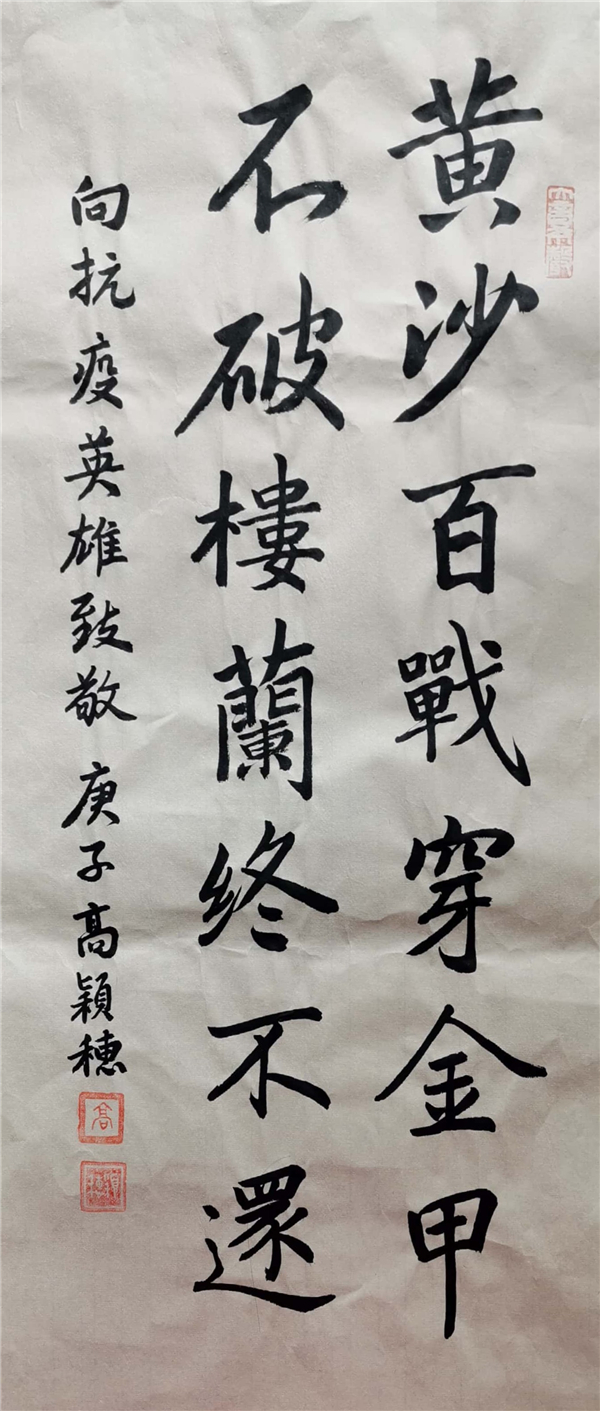 黄沙百戰穿金甲
不破樓蘭終不還
向抗疫英雄致敬 庚子高穎穗
高